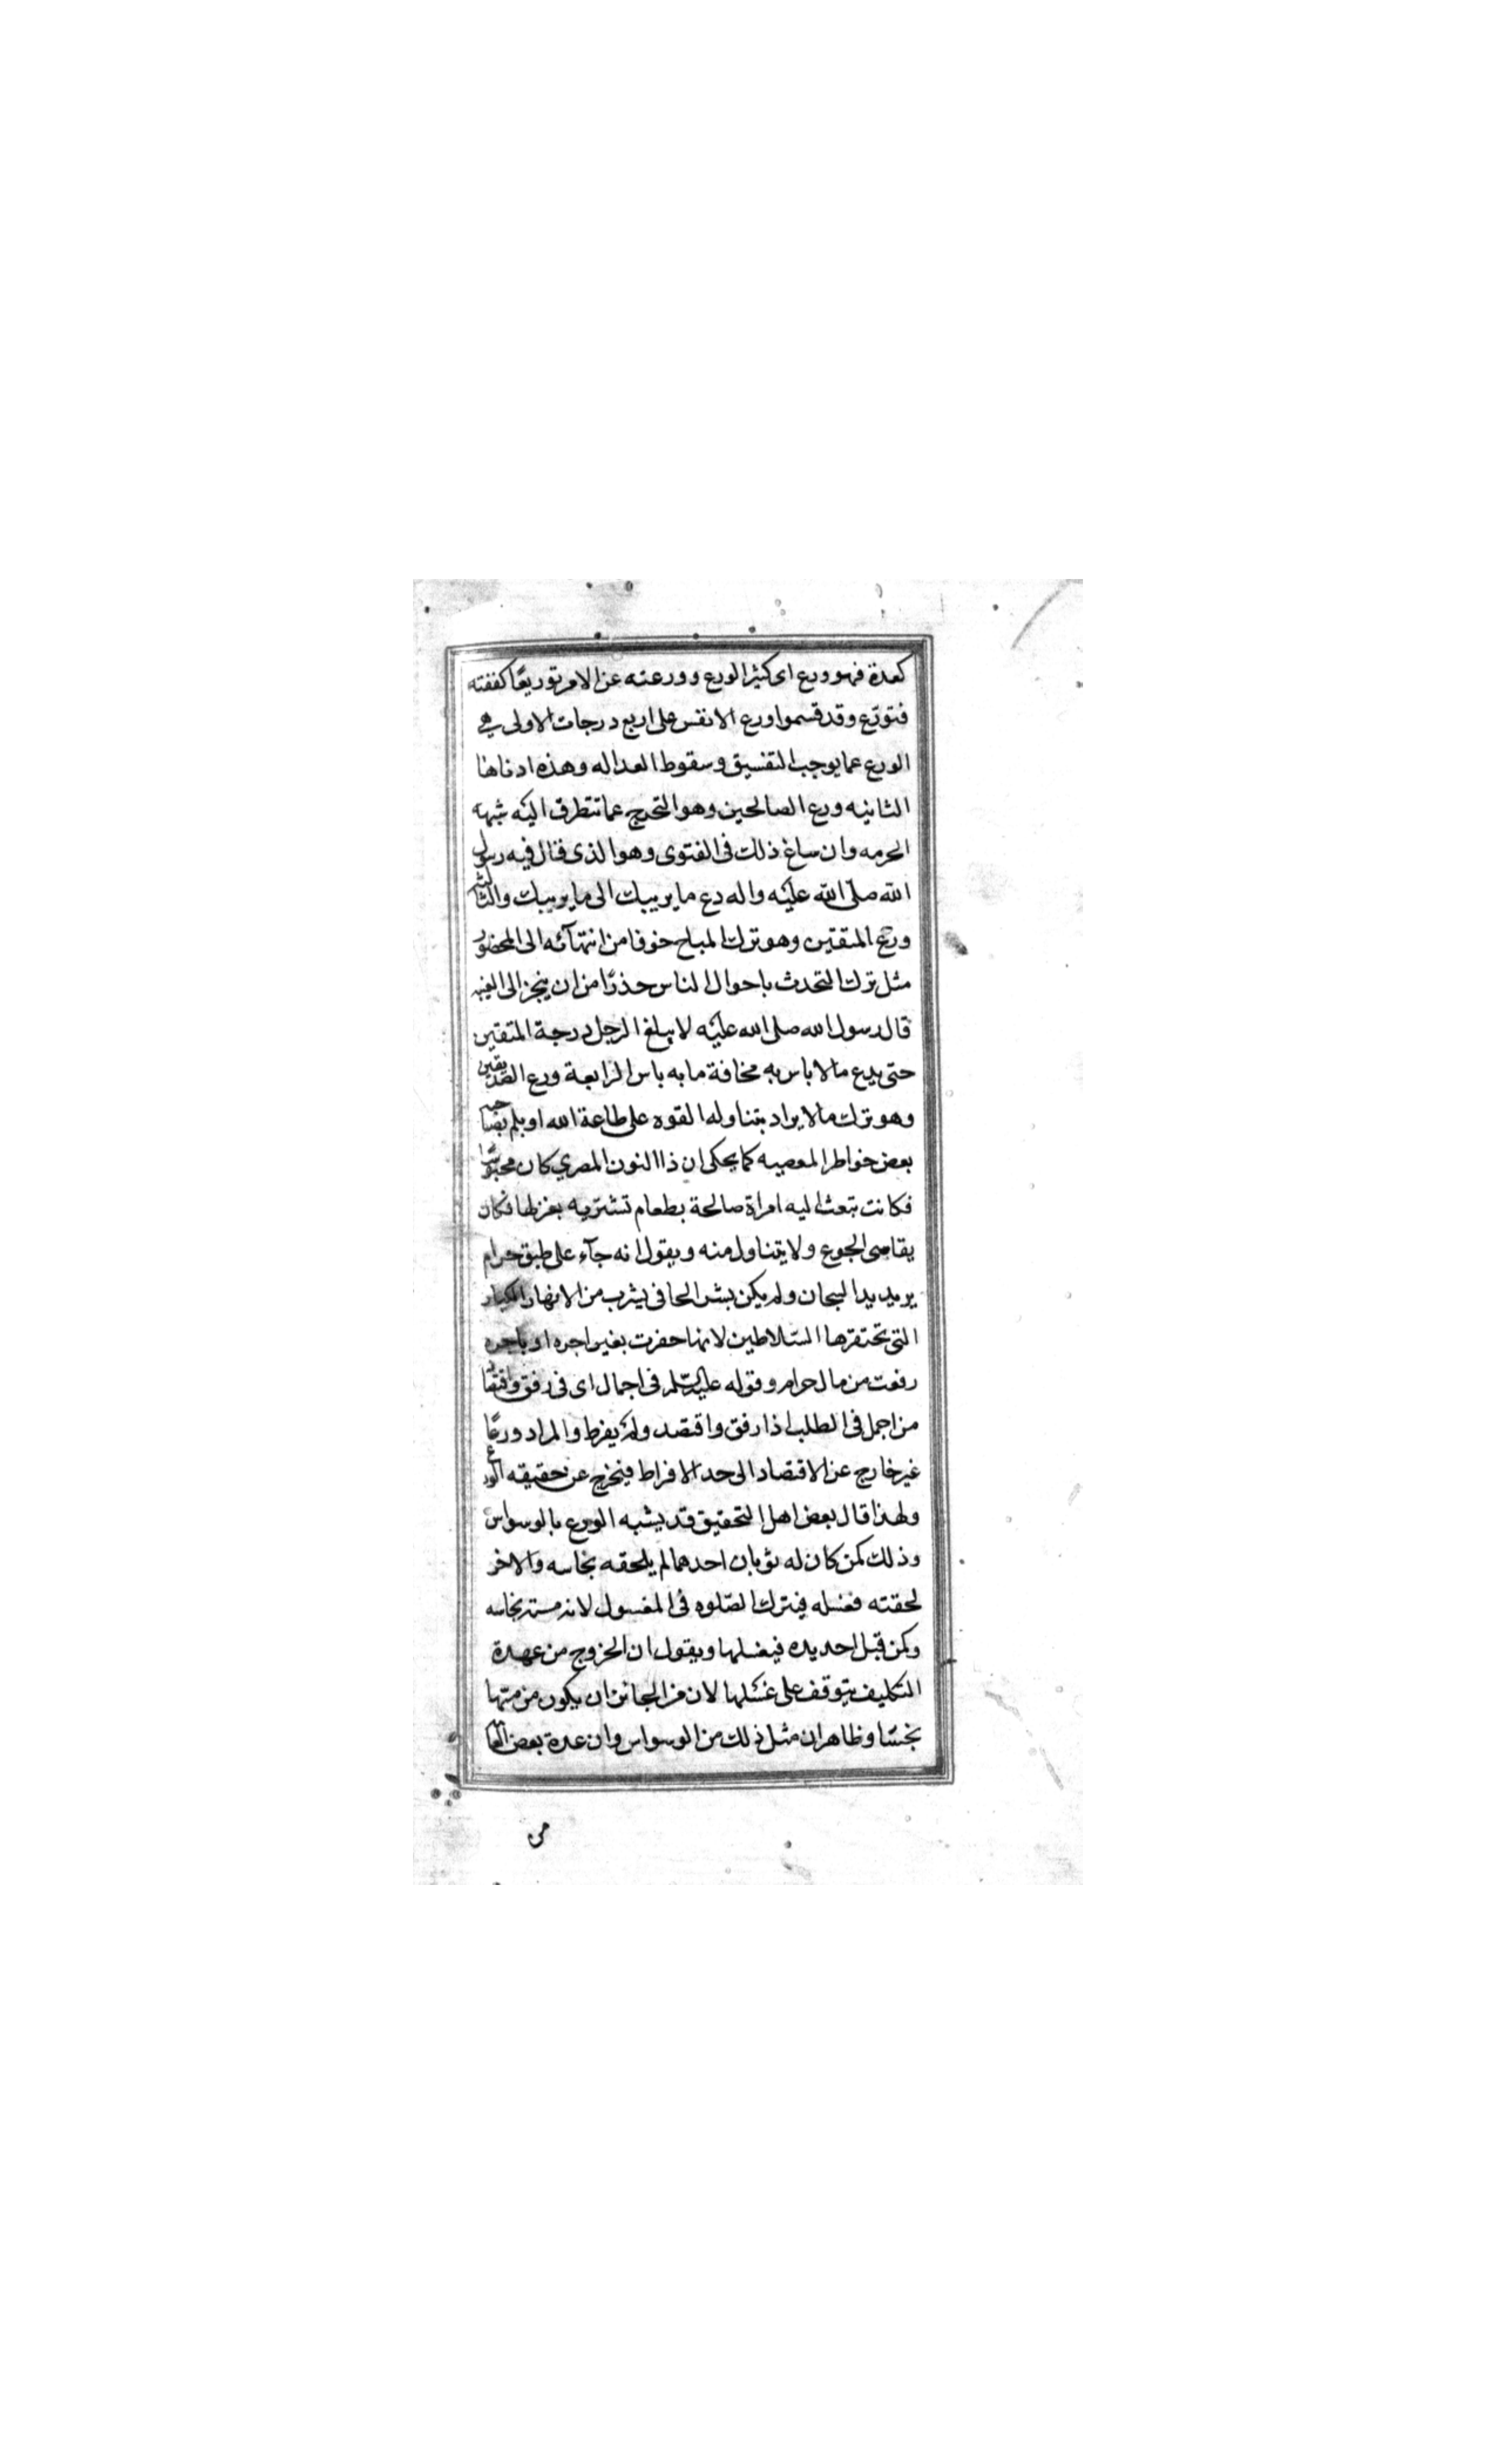 كعدة فهو ورع اى كثير الورع وورعته عن الامر توريعًا كففته
فتورّع وقد قسموا ورع الانفس على اربع درجات الاولى هى
الورع عما يوجب التفسيق وسقوط العداله وهذه ادناها
الثانيه ورع الصالحين وهو التحرج عما تتطرق اليه شبهه
الحرمه وان ساغ ذلك فى الفتوى وهو الذى قال فيه رسول
الله صلّى الله عليه واله دع ما يريبك الى ما يريبك والثالثه
ورع المتقين وهو ترك المباح خوفا من انتهآئه الى المحضور
مثل ترك التحدث باحوال الناس حذرًا من ان ينجر الى الغيبه
قال رسول الله صلى الله عليه لا يبلغ الرجل درجة المتقين
حتى يدع مالا باس به مخافة ما به باس الرابعة ورع الصديقين
وهو ترك مالا يراد بتناوله القوه على طاعة الله او يلم بصاحبه
بعض خواطر المعصيه كما يحكى ان ذا النون المصري كان محبوسًا
فكانت تبعث اليه امراة صالحة بطعام تشتريه بغزلها فكان
يقاسى الجوع ولا يتناول منه ويقول انه جآء على طبق حرام
يريد يد السجان ولم يكن بشر الحافى يشرب من الانهار الكبار
التى تحتفرها السّلاطين لانها حفرت بغير اجره او باجره
رفعت من مال حرام وقوله عليه السّلم فى اجمال اى فى رفق واقتصاد
من اجمل فى الطلب اذا رفق واقتصد ولم يفرط والمراد ورعًا
غير خارج عن الاقتصاد الى حد الافراط فيخرج عن حقيقه الورع
ولهذا قال بعض اهل التحقيق قد يشبه الورع بالوسواس
وذلك كمن كان له ثوبان احدهما لم يلحقه نجاسه والاخر
لحقته فغسله فيترك الصّلوه فى المغسول لانه مسته نجاسه
وكمن قبل احد يده فيغسلها ويقول ان الخروج من عهدة
التكليف يتوقف على غسلها لان من الجائز ان يكون من مسّها
نجسًا وظاهر ان مثل ذلك من الوسواس وان عده بعض العامه
من